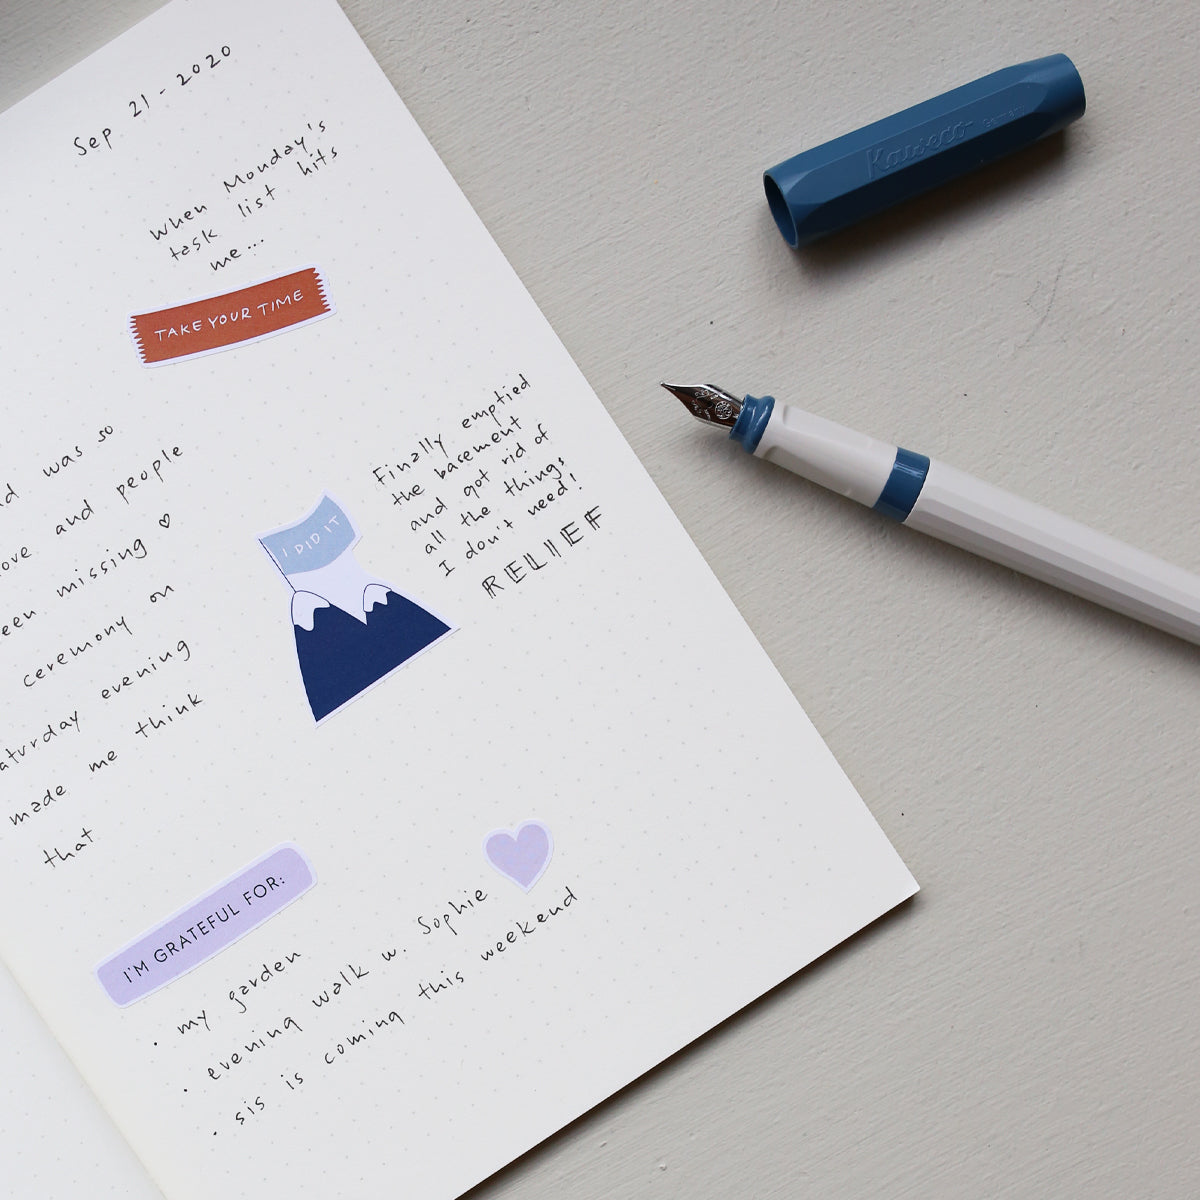 Sep 21 - 2020
When Monday's
task list hits
me...
TAKE YOUR TIME
was so
and people
missing ♡
ceremony on
evening
made me think
that
I DID IT
Finally emptied
the basement
and got rid of
all the things
I don't need!
RELIEF
I'M GRATEFUL FOR:
• my garden
• evening walk w. Sophie
• sis is coming this weekend
Kaweco
Germany